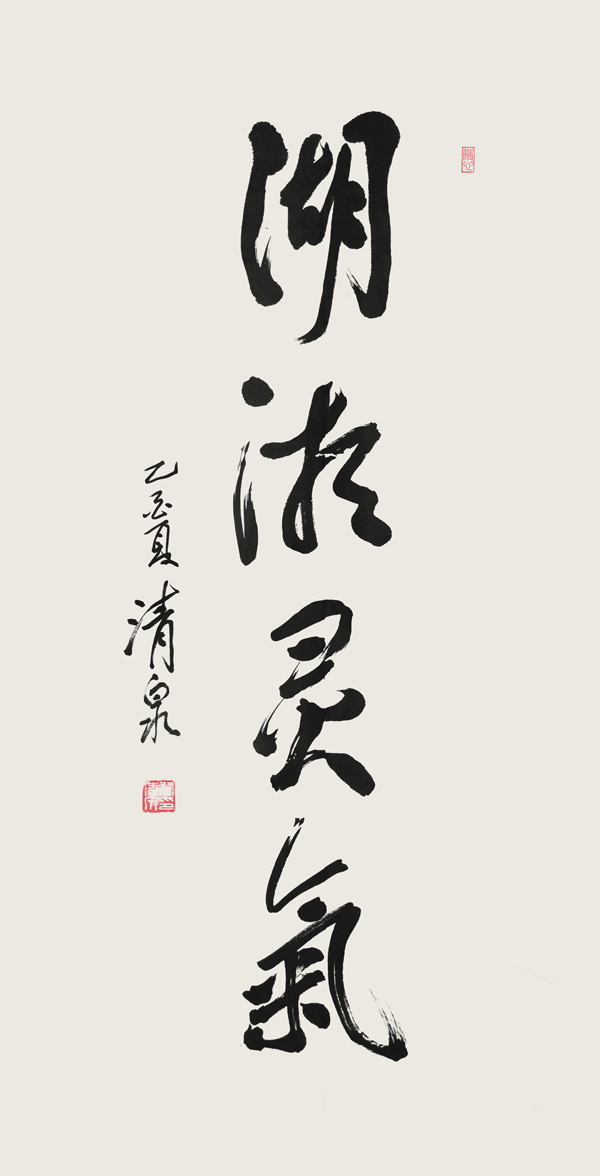 湖湘灵氣
乙酉夏 清泉